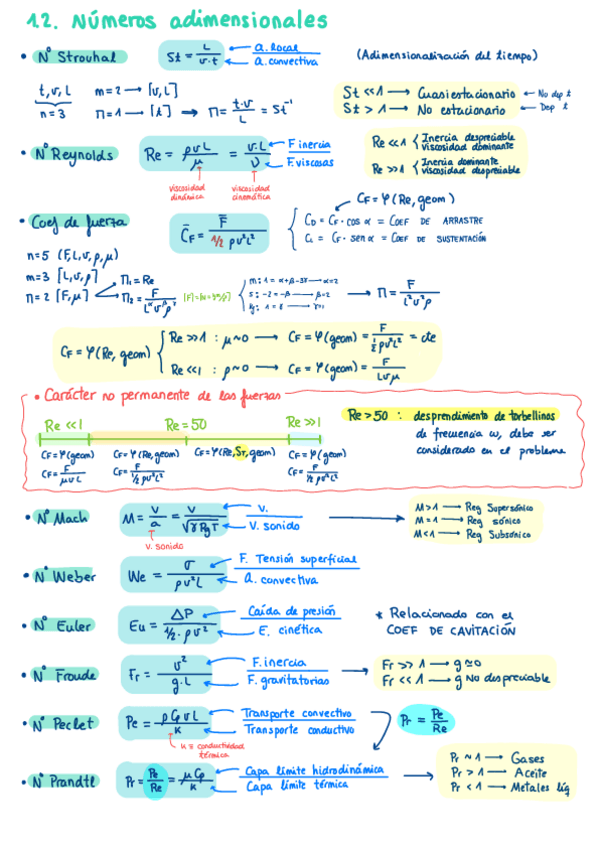 1.2. Números adimensionales
• Nº Strouhal St = L / v·t a. local / a. convectiva (Adimensionalización del tiempo)
t, v, L m=2 → [v, L] St <<1 → Cuasiestacionario ← No dep t
n=3 Π=1 → [t] → Π = t·v / L = St⁻¹ St >1 → No estacionario ← Dep t
• Nº Reynolds Re = ρvL / μ = v·L / ν F inercia / F. viscosas
Re <<1 { Inercia despreciable viscosidad dominante
Re >>1 { Inercia dominante viscosidad despreciable
viscosidad dinámica viscosidad cinemática
CF = φ(Re, geom)
• Coef de fuerza C̄F = F̄ / 1/2 ρv²L²
CD = CF · cos α = COEF DE ARRASTRE
CL = CF · sen α = COEF DE SUSTENTACIÓN
n=5 (F, L, v, ρ, μ)
m=3 [L, v, ρ] Π1 = Re
Π=2 [F, μ] Π2 = F / L^α v^β ρ^γ
m: 1 = α+β-3γ → α=2
s: -2 = -β → β=2
kg: 1 = γ → γ=1
→ Π = F / L²v²ρ
CF = φ(Re, geom)
Re >>1 : μ~0 → CF = φ(geom) = F / ½ρv²L² = cte
Re <<1 : ρ~0 → CF = φ(geom) = F / Lvμ
• Carácter no permanente de las fuerzas
Re <<1 Re = 50 Re >>1
CF=φ(geom) CF = φ(Re, geom) CF = φ(Re, ST, geom) CF = φ(geom)
CF = F / μvL CF = F / ½ρv²L² CF = F / ½ρv²L²
Re > 50 : desprendimiento de torbellinos
de frecuencia ω, debe ser
considerado en el problema
• Nº Mach M = v / a = v / √γRgT v. / v. sonido
v. sonido
M>1 → Reg Supersónico
M=1 → Reg sónico
M<1 → Reg Subsónico
• Nº Weber We = σ / ρv²L F. Tensión superficial / a. convectiva
• Nº Euler Eu = ΔP / ½·ρv² Caída de presión / E. cinética
* Relacionado con el
COEF DE CAVITACIÓN
• Nº Froude Fr = v² / g·L F. inercia / F. gravitatorias
Fr >>1 → g≃0
Fr <<1 → g No despreciable
• Nº Peclet Pe = ρCpvL / K Transporte convectivo / Transporte conductivo Pr = Pe / Re
K ≡ conductividad térmica
• Nº Prandtl Pr = Pe / Re = μCp / K Capa límite hidrodinámica / Capa límite térmica
Pr ~1 → Gases
Pr >1 → Aceite
Pr <1 → Metales líq